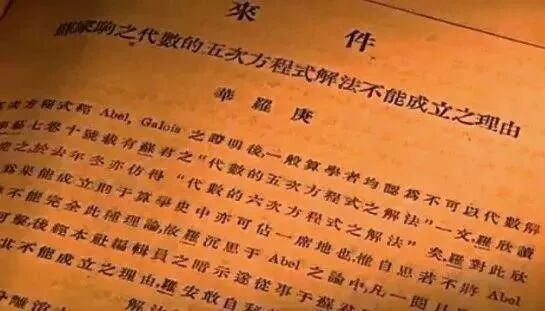 來件
蘇家駒之代數的五次方程式解法不能成立之理由
華羅庚
五次方程式經 Abel, Galois 之證明後,一般算學者均認為不可以代數解
七卷十號載有蘇君之“代數的五次方程式之解法”一文,羅欣讀
之於去年冬亦仿得“代數的六次方程式之解法”矣,羅對此欣
為果能成立則于算學史中亦可佔一席地也,惟自思若不將 Abel
不能完全此種理論,故羅沉思于 Abel 之論中,凡一閱月
後經本社編輯員之暗示遂從事于蘇君
其不能成立之理由,羅安敢自
解法